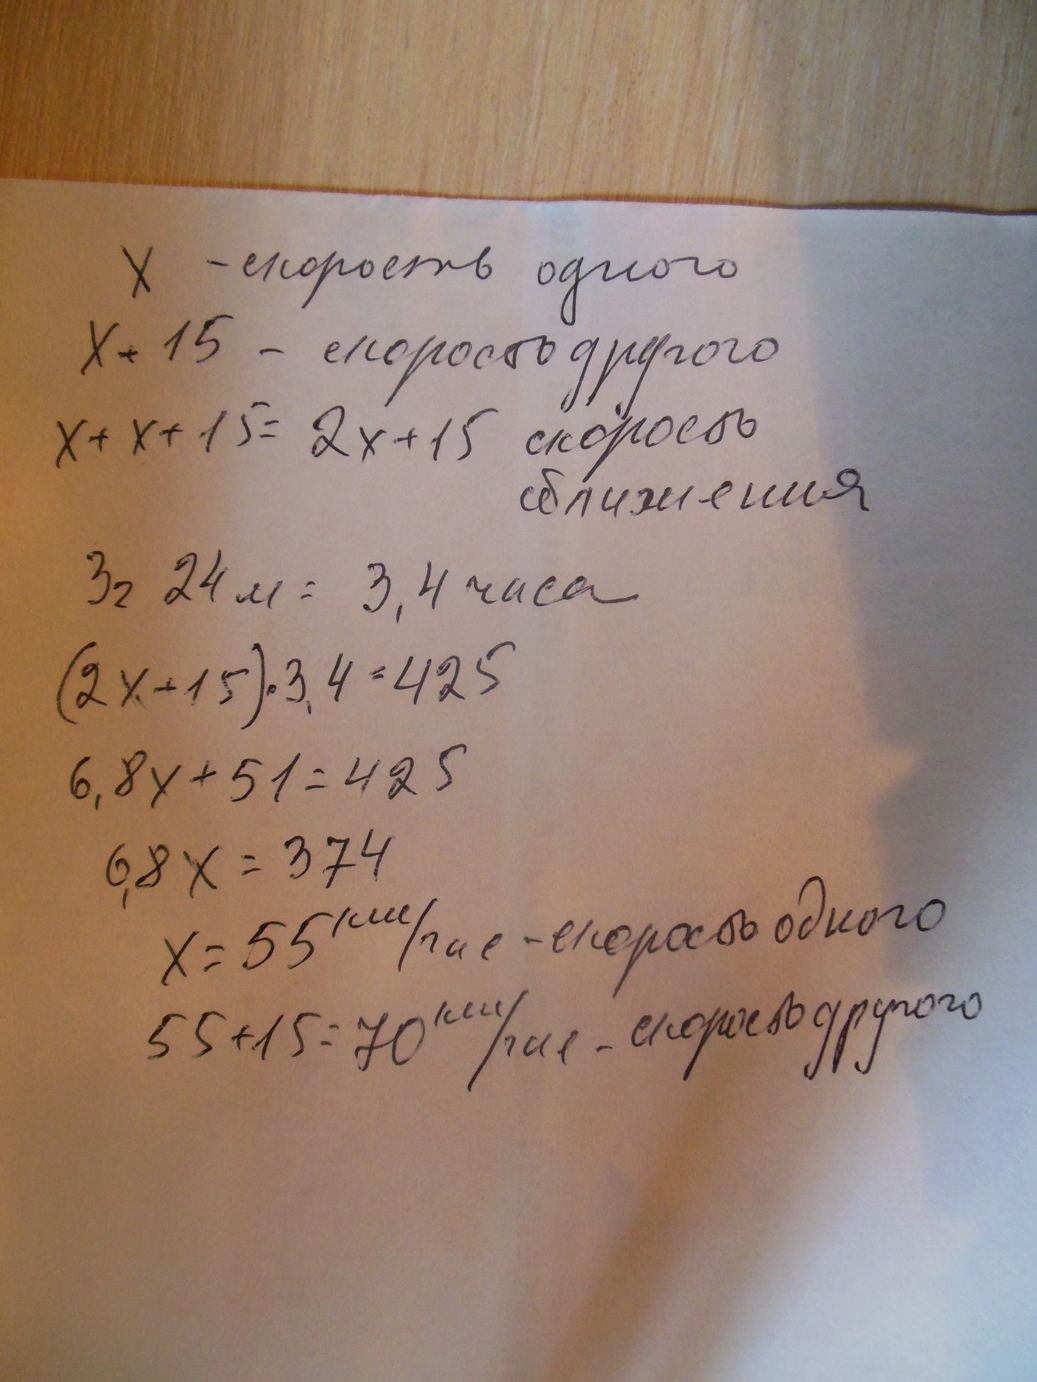 x - скорость одного
x+15 - скорость другого
x+x+15= 2x+15 скорость
сближения
3ч 24м = 3,4 часа
(2x+15)·3,4=425
6,8x+51=425
6,8x=374
x=55 км/час - скорость одного
55+15=70 км/час - скорость другого